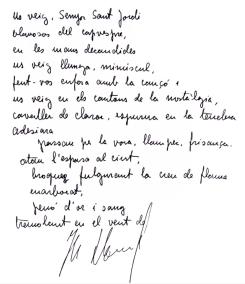 Us veig, Senyor Sant Jordi
blavosos del capvespre,
en les mans decandides
us veig llunyà, minúscul,
fent-vos enfora amb la cançó i
us veig en els cantons de la nostàlgia,
cavaller de claror, espurna en la tenebra
passau per la vora, llampec, frisança.
l'espasa al cint,
fulgurant la creu de flama
enarborat,
penó d'or i sang
tremolant en el vent de